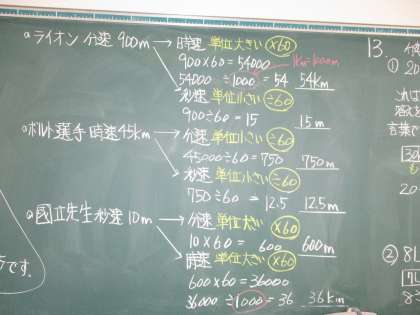 ライオン 分速 900m → 時速 単位大きい ×60
900×60=54000 1km=1000m
54000÷1000=54 54km
秒速 単位小さい ÷60
900÷60=15 15m
ボルト選手 時速45km → 分速 単位小さい ÷60
45000÷60=750 750m
秒速 単位小さい ÷60
750÷60=12.5 12.5m
國立先生 秒速10m → 分速 単位大きい ×60
10×60=600 600m
時速 単位大きい ×60
600×60=36000
36000÷1000=36 36km
方です。
13
① 20
言葉で
30
20
② 8L
7L
8÷